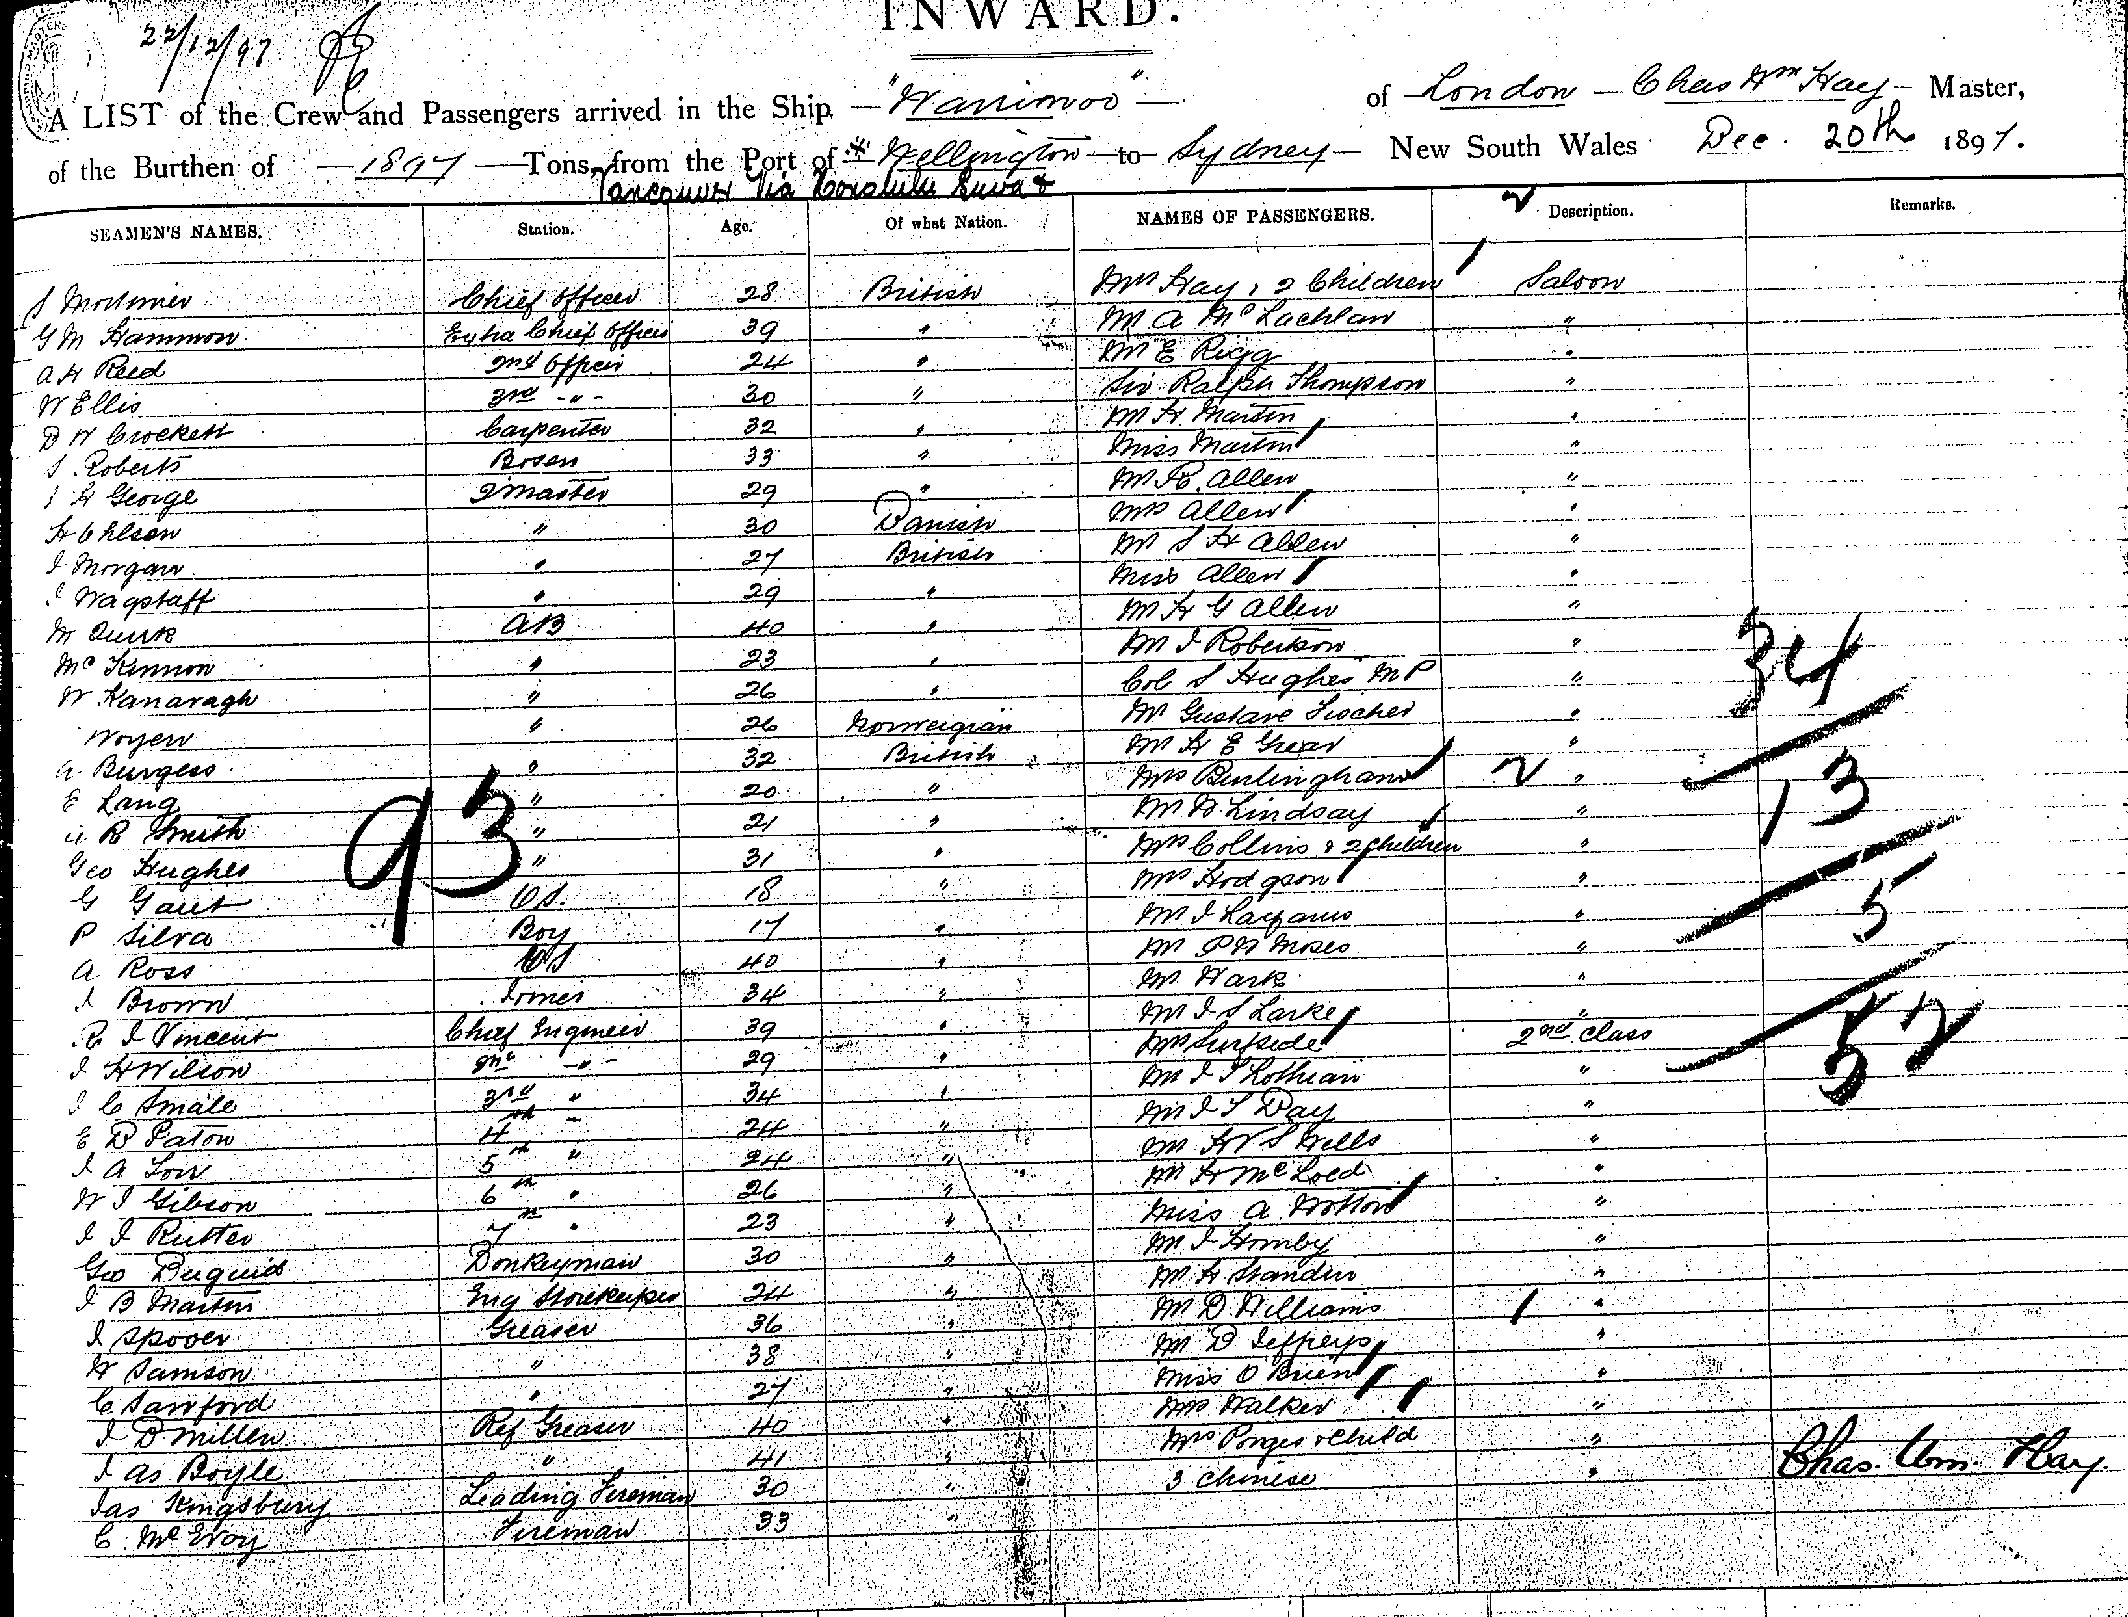 INWARD.
22/12/97
A LIST of the Crew and Passengers arrived in the Ship "Warrimoo" of London Chas Wm Hay Master,
of the Burthen of 1897 Tons, from the Port of Wellington to Sydney New South Wales Dec. 20th 1897.
Vancouver Via Honolulu Suva &
SEAMEN'S NAMES. Station. Age. Of what Nation. NAMES OF PASSENGERS. Description. Remarks.
S Mortimer Chief Officer 28 British Mrs Hay & 2 Children Saloon
G M Hammon Extra Chief Officer 39 " Mr A McLachlan "
A H Reed 2nd Officer 24 " Mr E Rigg "
W Ellis 3rd -"- 30 " Sir Ralph Thompson "
D W Crockett Carpenter 32 " Mr H Martin "
S Roberts Bosen 33 " Miss Martin "
J H George Qmaster 29 " Mr R. Allen "
H Ohlsen " 30 Danish Mrs Allen "
J Morgan " 27 British Mr S H Allen "
J Wagstaff " 29 " Miss Allen "
M Quirk AB 40 " Mr H G Allen "
McKinnon " 23 " Mr J Robertson "
W Kanavagh " 26 " Col S Hughes MP " 34
Noyen " 26 Norweigian Mr Gustave Fischer "
A Burgess " 32 British Mr H E Grear "
E Lang " 20 " Mrs Burlingham " 13
A R Smith " 21 " Mr W Lindsay "
Geo Hughes 93 " 31 " Mrs Collins & 2 Children "
G Gaut O.S. 18 " Mrs Hodgson " 5
P Silva Boy 17 " Mr J "
A Ross OS 40 " Mr P W Moses "
J Brown 34 " Mr Wark "
R J Vincent Chief Engineer 39 " Mr J S Larke " 52
J H Wilson 2nd -"- 29 " Mrs 2nd Class
J C Smale 3rd " 34 " Mr J T Lothian "
E D Paton 4th " 24 " Mr J T Day "
J A Low 5th " 24 " Mr H V S Wells "
W J Gibson 6th " 26 " Mr H McLoed "
J J Rutter 7th " 23 " Miss A Wotton "
Geo Duguid Donkeyman 30 " Mr J Hornby "
J B Martin Eng Storekeeper 24 " Mr H Standen "
J Spooer Greaser 36 " Mr D Williams "
W Samson " 38 " Mr D Jeffreys "
C Sawford " 27 " Miss O Brien "
J D Millen Ref Greaser 40 " Mrs Walker "
Jas Boyle " 41 " Mrs Porges & Child "
Jas Kingsbury Leading Fireman 30 " 3 Chinese "
C McEvoy Fireman 33 "
Chas. Wm. Hay.